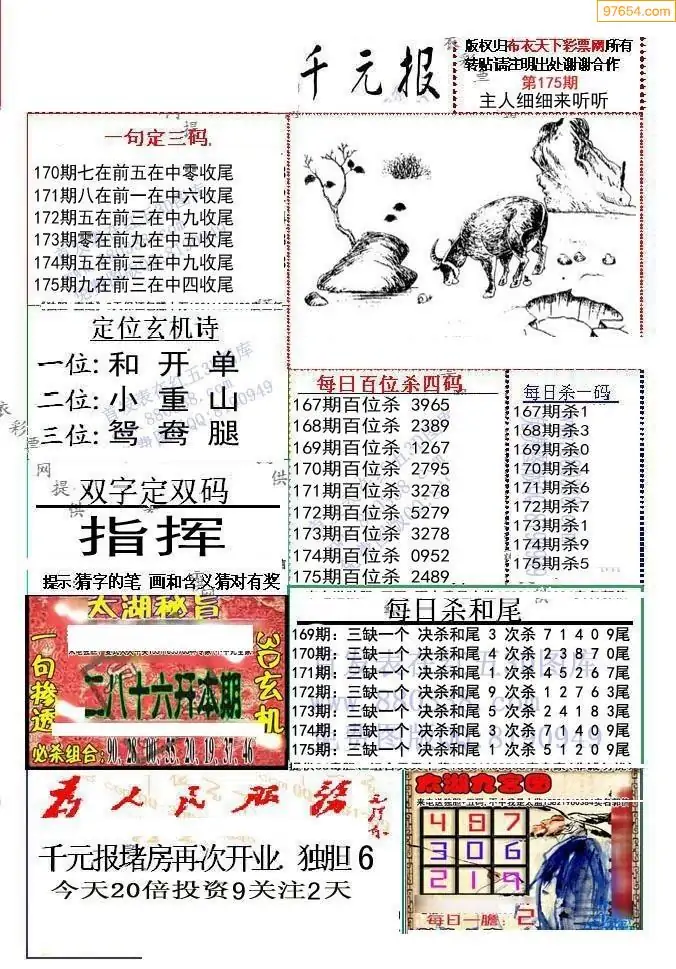 97654.com
千元报
版权归布衣天下彩票网所有
转贴请注明出处谢谢合作
第175期
主人细细来听听
一句定三码
170期七在前五在中零收尾
171期八在前一在中六收尾
172期五在前三在中九收尾
173期零在前九在中五收尾
174期五在前三在中九收尾
175期九在前三在中四收尾
定位玄机诗
一位: 和 开 单
二位: 小 重 山
三位: 鸳 鸯 腿
每日百位杀四码
167期百位杀 3965
168期百位杀 2389
169期百位杀 1267
170期百位杀 2795
171期百位杀 3278
172期百位杀 5279
173期百位杀 3278
174期百位杀 0952
175期百位杀 2489
每日杀一码
167期杀1
168期杀3
169期杀0
170期杀4
171期杀6
172期杀7
173期杀1
174期杀9
175期杀5
双字定双码
指挥
提示:猜字的笔 画和含义猜对有奖
太湖秘旨
一句掺透
3D玄机
二八十六开本期
必杀组合:90,28,00,55,20,19,37,46
每日杀和尾
169期: 三缺一个 决杀和尾 3 次杀 7 1 4 0 9尾
170期: 三缺一个 决杀和尾 4 次杀 2 3 8 7 0尾
171期: 三缺一个 决杀和尾 1 次杀 4 5 2 6 7尾
172期: 三缺一个 决杀和尾 9 次杀 1 2 7 6 3尾
173期: 三缺一个 决杀和尾 5 次杀 2 4 1 8 9尾
174期: 三缺一个 决杀和尾 3 次杀 7 1 4 0 9尾
175期: 三缺一个 决杀和尾 1 次杀 5 1 2 0 9尾
为人民服务
千元报堵房再次开业. 独胆 6
今天20倍投资9关注2天
太湖九宫图
4 9 7
3 0 6
2 1 9
每日一胆: 2